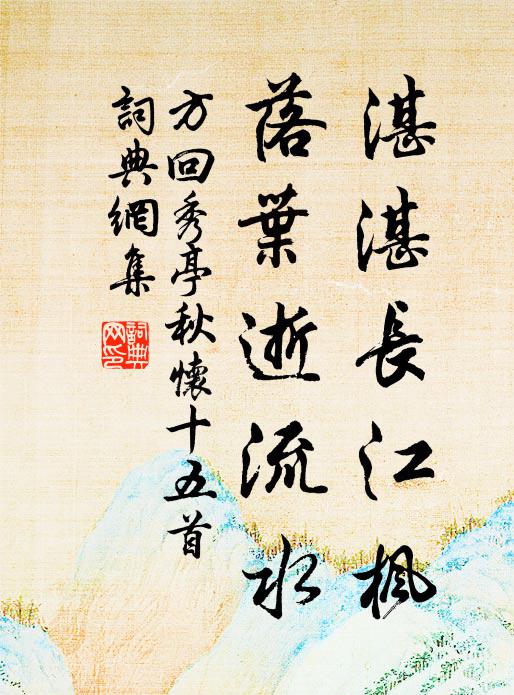 湛湛長江楓
落葉逝流水
方回秀亭秋懷十五首
詞典網集
詞典
网印